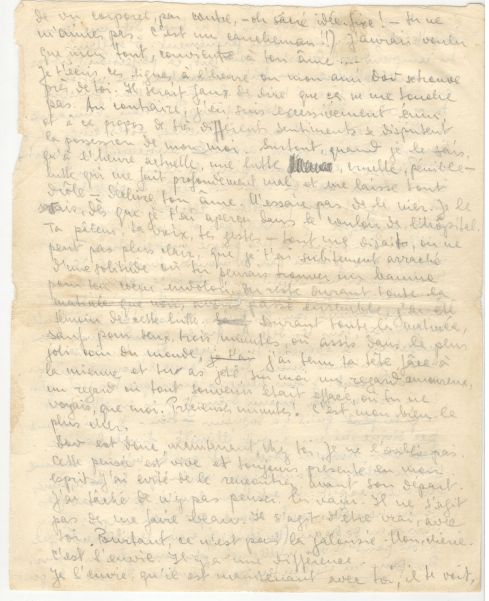 de vu corporel, par contre, - oh sacré idée fixe! - tu ne
m'aimes pas. C'est un cauchemar!!) J'aurais voulu
que mon tout, convienne à ton âme....
Je t'écris ces lignes à l'heure où mon ami Dav se trouve
près de toi. Il serait faux de dire que ça ne me touche
pas. Au contraire, j'en suis excessivement ému,
et à ce propos de très différents sentiments se disputent
la possession de mon moi. Surtout, quand je le sais,
qu'à l'heure actuelle, une lutte cruelle, pénible -
lutte qui me fait profondément mal et me laisse tout
drôle - déchire ton âme. N'essaye pas de le nier. Je le
sais, dès que je t'ai aperçu dans le couloir de l'hôpital.
Ta pâleur, ta voix, tes gestes - tout me disait, on ne
peut pas plus clair, que je t'ai subitement arraché
d'une solitude où tu pensais trouver un baume
pour ton coeur endolori. Du reste durant toute la
matinée que nous avons passé ensemble, j'ai été
témoin de cette lutte. Durant toute la matinée,
sauf pour deux, trois minutes, où assis dans le plus
joli coin du monde, j'ai tenu ta tête face à
la mienne et tu as jeté sur moi un regard amoureux,
un regard où tout souvenir était effacé, où tu ne
voyais que moi. Précieuses minutes. C'est mon bien le
plus cher.
Dav est donc, maintenant chez toi, je ne l'oublie pas.
Cette pensée est vive et toujours présente en mon
esprit. J'ai évité de le rencontrer avant son départ.
J'ai tâché de n'y pas penser. En vain. Il ne s'agit
pas de me faire beau. Il s'agit d'être vrai, avec
toi. Pourtant, ce n'est pas la jalousie. Non, chère.
C'est l'envie. Il y a une différence.
Je l'envie, qu'il est maintenant avec toi, il te voit,